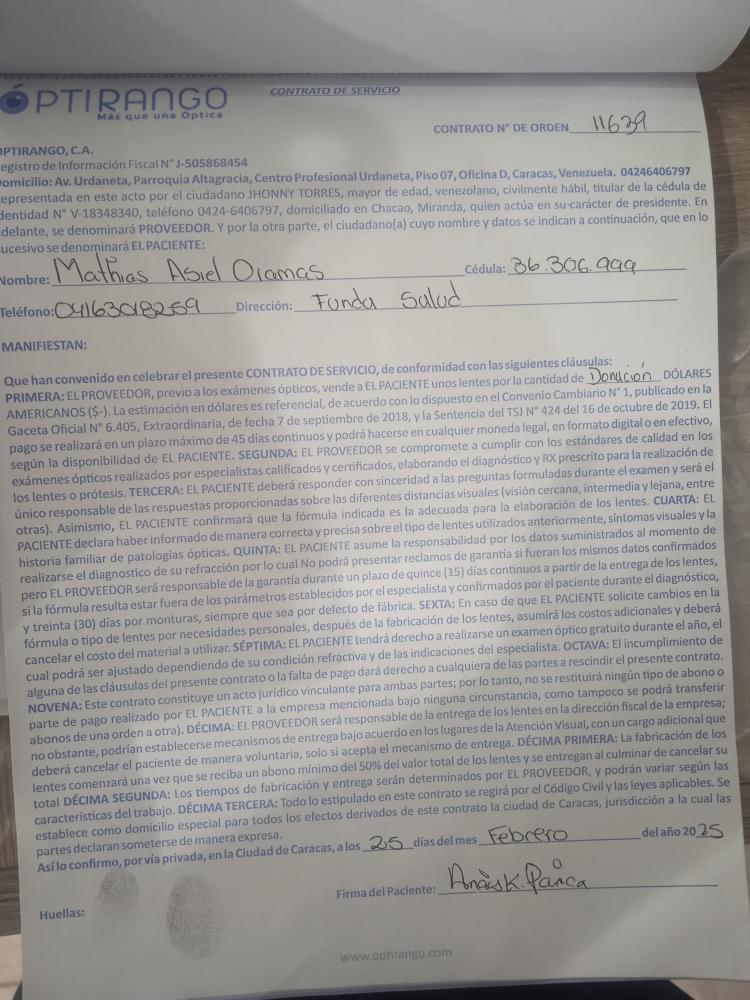 ÓPTIRANGO
Más que una Optica
CONTRATO DE SERVICIO
CONTRATO N° DE ORDEN 11639
OPTIRANGO, C.A.
Registro de Información Fiscal N° J-505868454
Domicilio: Av. Urdaneta, Parroquia Altagracia, Centro Profesional Urdaneta, Piso 07, Oficina D, Caracas, Venezuela. 04246406797
representada en este acto por el ciudadano JHONNY TORRES, mayor de edad, venezolano, civilmente hábil, titular de la cédula de
identidad N° V-18348340, teléfono 0424-6406797, domiciliado en Chacao, Miranda, quien actúa en su carácter de presidente. En
adelante, se denominará PROVEEDOR. Y por la otra parte, el ciudadano(a) cuyo nombre y datos se indican a continuación, que en lo
sucesivo se denominará EL PACIENTE:
Nombre: Mathias Asiel Oramas Cédula: 36.306.999
Teléfono: 04163018259 Dirección: Funda Salud
MANIFIESTAN:
Que han convenido en celebrar el presente CONTRATO DE SERVICIO, de conformidad con las siguientes cláusulas:
PRIMERA: EL PROVEEDOR, previo a los exámenes ópticos, vende a EL PACIENTE unos lentes por la cantidad de Donación DÓLARES
AMERICANOS ($-). La estimación en dólares es referencial, de acuerdo con lo dispuesto en el Convenio Cambiario N° 1, publicado en la
Gaceta Oficial N° 6.405, Extraordinaria, de fecha 7 de septiembre de 2018, y la Sentencia del TSJ N° 424 del 16 de octubre de 2019. El
pago se realizará en un plazo máximo de 45 días continuos y podrá hacerse en cualquier moneda legal, en formato digital o en efectivo,
según la disponibilidad de EL PACIENTE. SEGUNDA: EL PROVEEDOR se compromete a cumplir con los estándares de calidad en los
exámenes ópticos realizados por especialistas calificados y certificados, elaborando el diagnóstico y RX prescrito para la realización de
los lentes o prótesis. TERCERA: EL PACIENTE deberá responder con sinceridad a las preguntas formuladas durante el examen y será el
único responsable de las respuestas proporcionadas sobre las diferentes distancias visuales (visión cercana, intermedia y lejana, entre
otras). Asimismo, EL PACIENTE confirmará que la fórmula indicada es la adecuada para la elaboración de los lentes. CUARTA: EL
PACIENTE declara haber informado de manera correcta y precisa sobre el tipo de lentes utilizados anteriormente, síntomas visuales y la
historia familiar de patologías ópticas. QUINTA: EL PACIENTE asume la responsabilidad por los datos suministrados al momento de
realizarse el diagnostico de su refracción por lo cual No podrá presentar reclamos de garantía si fueran los mismos datos confirmados
pero EL PROVEEDOR será responsable de la garantía durante un plazo de quince (15) días continuos a partir de la entrega de los lentes,
si la fórmula resulta estar fuera de los parámetros establecidos por el especialista y confirmados por el paciente durante el diagnóstico,
y treinta (30) días por monturas, siempre que sea por defecto de fábrica. SEXTA: En caso de que EL PACIENTE solicite cambios en la
fórmula o tipo de lentes por necesidades personales, después de la fabricación de los lentes, asumirá los costos adicionales y deberá
cancelar el costo del material a utilizar. SÉPTIMA: EL PACIENTE tendrá derecho a realizarse un examen óptico gratuito durante el año, el
cual podrá ser ajustado dependiendo de su condición refractiva y de las indicaciones del especialista. OCTAVA: El incumplimiento de
alguna de las cláusulas del presente contrato o la falta de pago dará derecho a cualquiera de las partes a rescindir el presente contrato.
NOVENA: Este contrato constituye un acto jurídico vinculante para ambas partes; por lo tanto, no se restituirá ningún tipo de abono o
parte de pago realizado por EL PACIENTE a la empresa mencionada bajo ninguna circunstancia, como tampoco se podrá transferir
abonos de una orden a otra). DÉCIMA: EL PROVEEDOR será responsable de la entrega de los lentes en la dirección fiscal de la empresa;
no obstante, podrían establecerse mecanismos de entrega bajo acuerdo en los lugares de la Atención Visual, con un cargo adicional que
deberá cancelar el paciente de manera voluntaria, solo si acepta el mecanismo de entrega. DÉCIMA PRIMERA: La fabricación de los
lentes comenzará una vez que se reciba un abono mínimo del 50% del valor total de los lentes y se entregan al culminar de cancelar su
total DÉCIMA SEGUNDA: Los tiempos de fabricación y entrega serán determinados por EL PROVEEDOR, y podrán variar según las
características del trabajo. DÉCIMA TERCERA: Todo lo estipulado en este contrato se regirá por el Código Civil y las leyes aplicables. Se
establece como domicilio especial para todos los efectos derivados de este contrato la ciudad de Caracas, jurisdicción a la cual las
partes declaran someterse de manera expresa.
Así lo confirmo, por vía privada, en la Ciudad de Caracas, a los 25 días del mes Febrero del año 2025
Firma del Paciente: Anaís K.
Huellas:
www.optirango.com